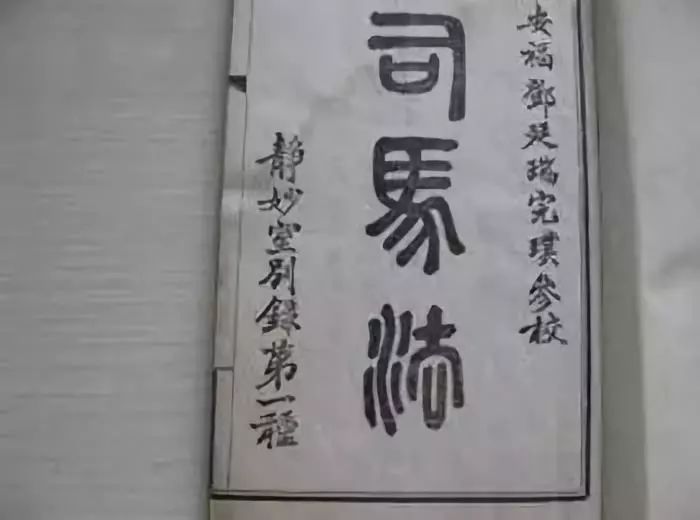 安福鄧廷瑞完璞參校
司馬法
靜妙室別錄第一種